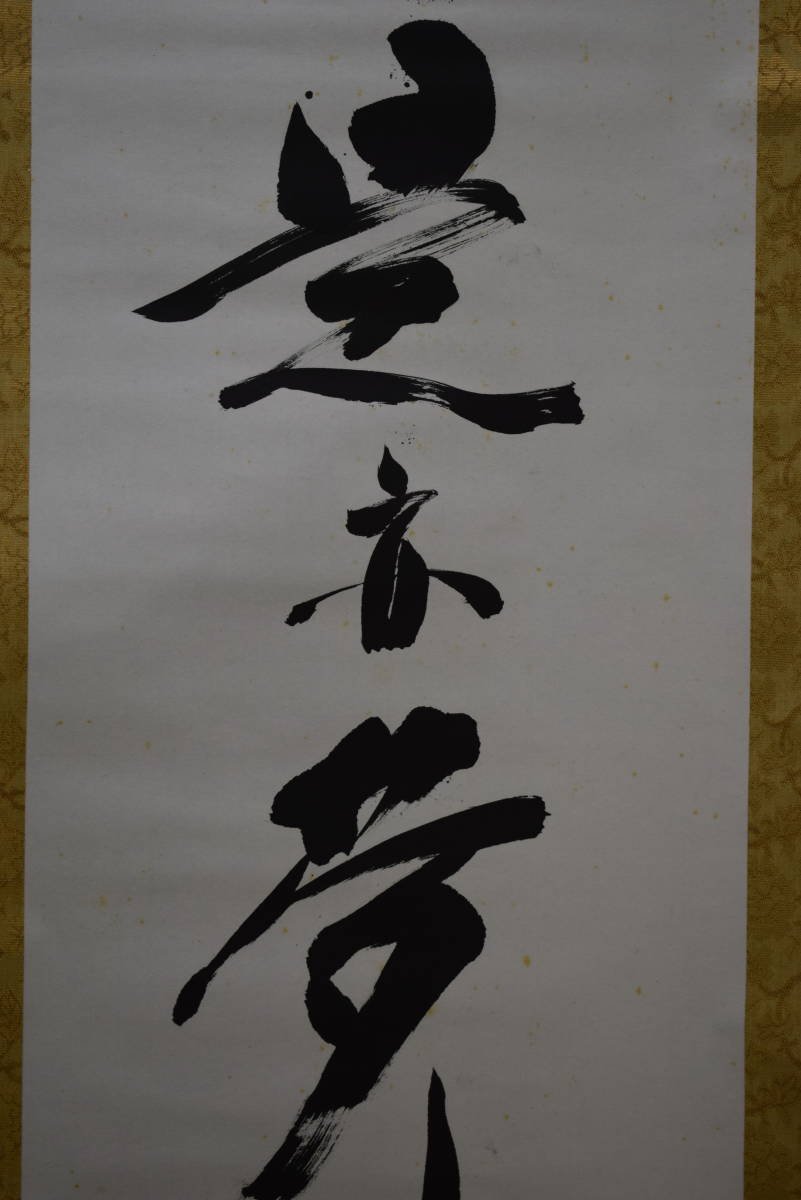 是亦夢